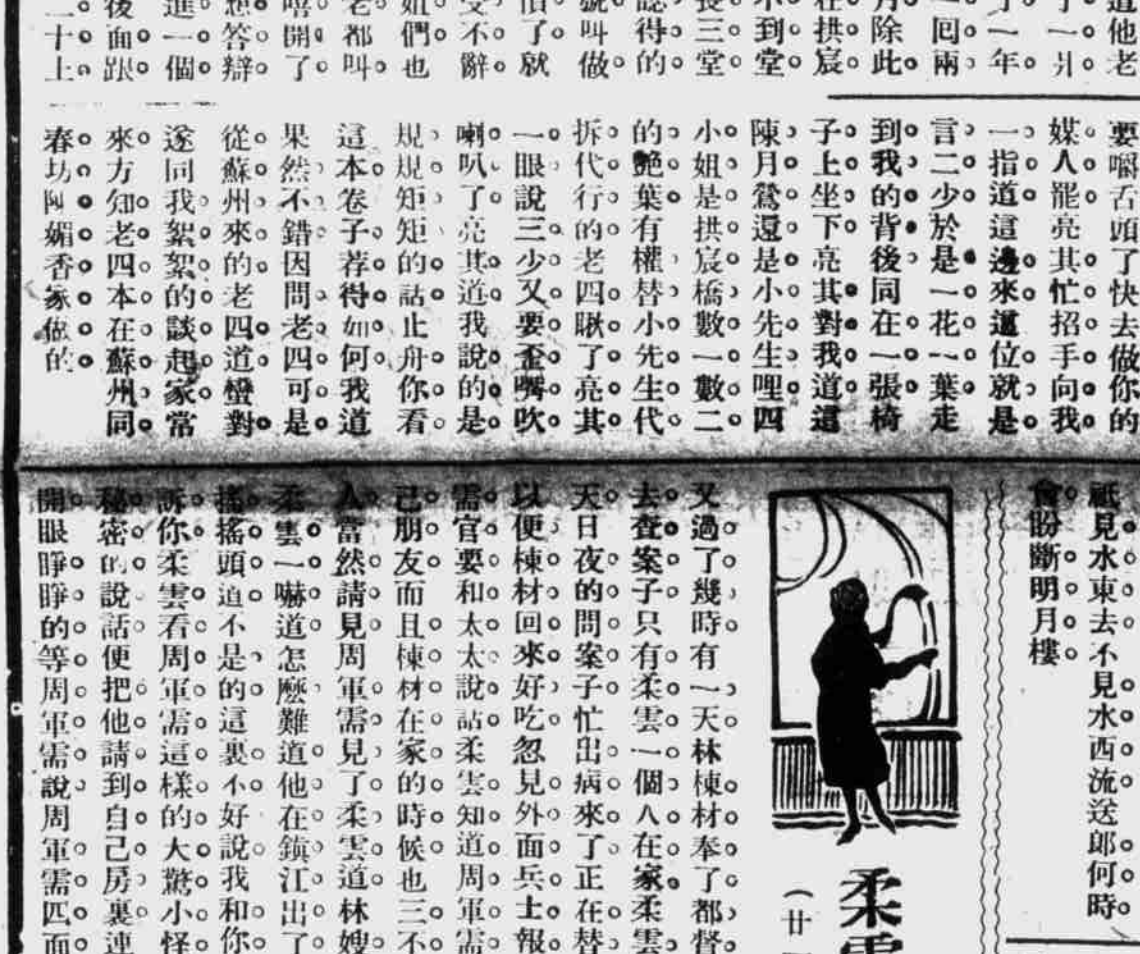 道他老
了一爿
了一年
一囘兩
月除此
在拱宸
不到堂
長三堂
認得的
號叫做
怕了就
受不辭
姐們也
老都叫
嘻開了
想答辯
進一個
後面跟
二十上
要嚼舌頭了快去做你的
媒人罷亮其忙招手向我
一指道這邊來這位就是
言二少於是一花一葉走
到我的背後同在一張椅
子上坐下亮其對我道這
陳月鶯還是小先生哩四
小姐是拱宸橋數一數二
的艷葉有權替小先生代
拆代行的老四瞅了亮其
一眼說三少又要歪嘴吹
喇叭了亮其道我說的是
規規矩矩的話止舟你看
這本卷子荐得如何我道
果然不錯因問老四可是
從蘇州來的老四道蠻對
遂同我絮絮的談起家常
來方知老四本在蘇州同
春坊媚香家做的
祇見水東去不見水西流送郎何時
會盼斷明月樓
柔雲
（廿
又過了幾時有一天林棟材奉了都督
去查案子只有柔雲一個人在家柔雲
天日夜的問案子忙出病來了正在替
以便棟材回來好吃忽見外面兵士報
需官要和太太說話柔雲知道周軍需
己朋友而且棟材在家的時候也三不
人當然請見周軍需見了柔雲道林嫂
柔雲一嚇道怎麼難道他在鎮江出了
搖搖頭道不是的這裏不好說我和你
訴你柔雲看周軍需這樣的大驚小怪
秘密的說話便把他請到自己房裏連
開眼睜睜的等周軍需說周軍需四面